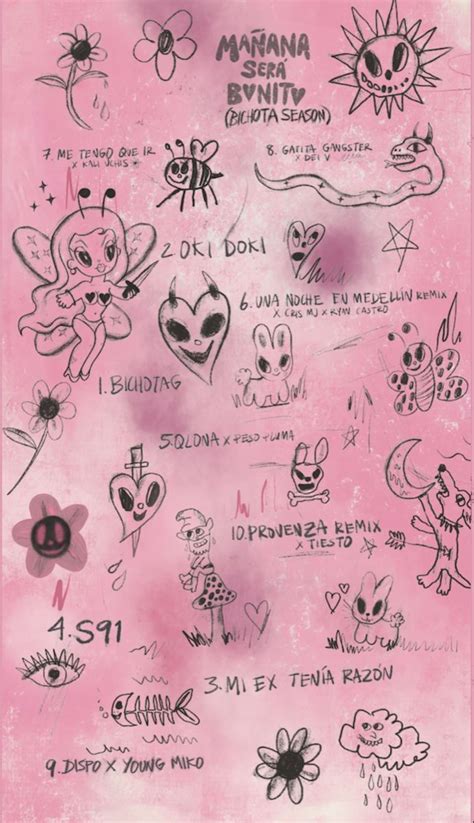 MAÑANA
SERÁ
BONITO
(BICHOTA SEASON)
7. ME TENGO QUE IR
X KALI UCHIS
8. GATITA GANGSTER
X DEI V
2 OKI DOKI
6. UNA NOCHE EN MEDELLÍN REMIX
X CRIS MJ X RYAN CASTRO
1. BICHOTAG
5. QLONA X PESO PLUMA
10. PROVENZA REMIX
X TIËSTO
4. S91
3. MI EX TENÍA RAZÓN
9. DISPO X YOUNG MIKO